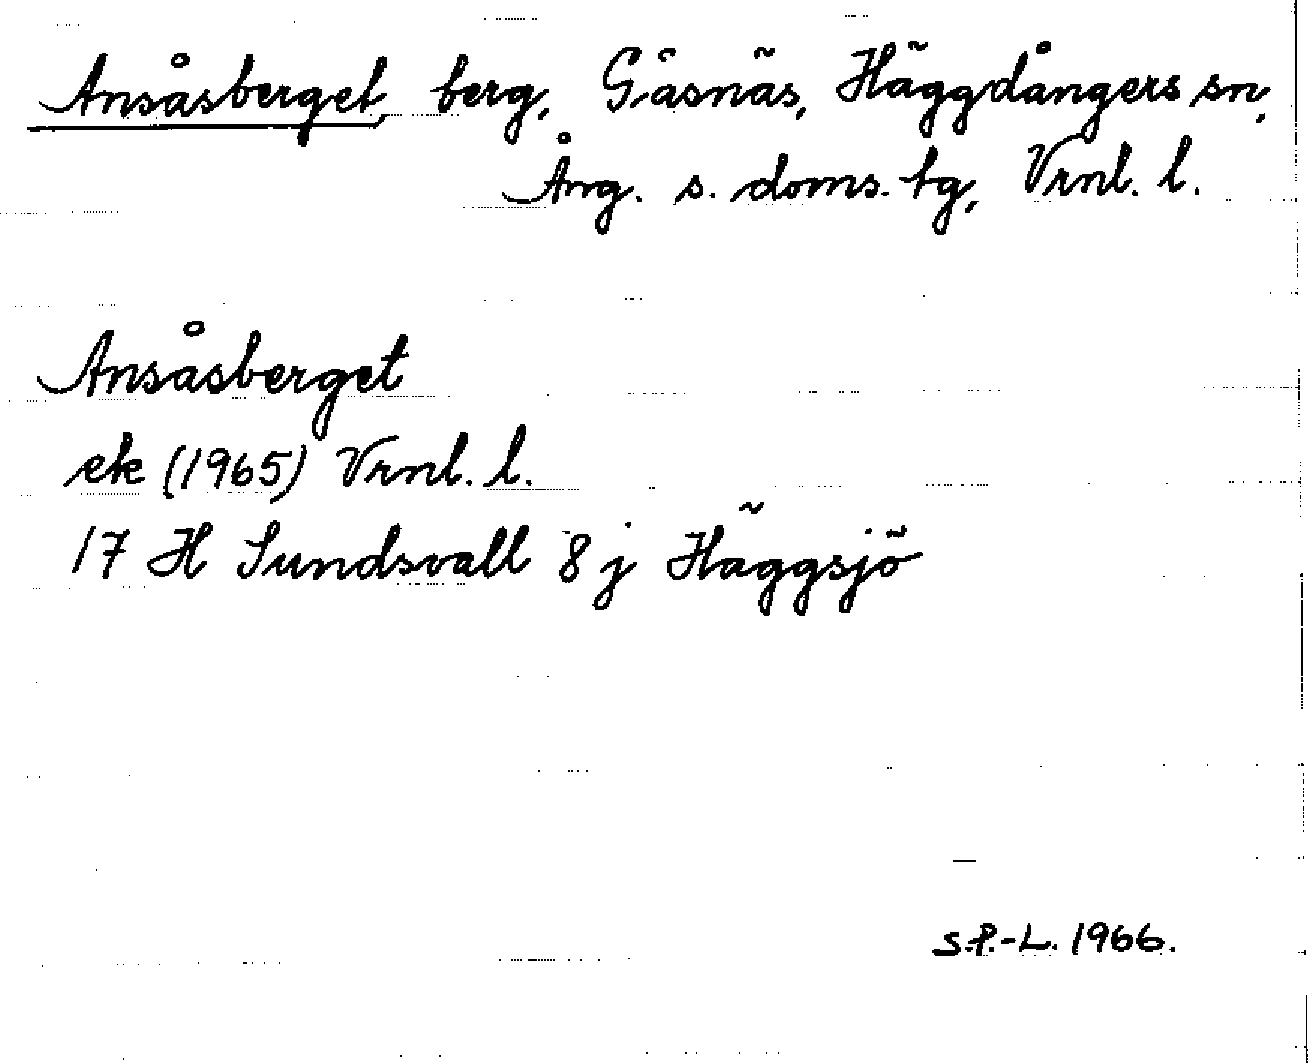 Ansåsberget berg, Gäsnäs, Häggdångers sn,
Ång. s. doms. tg, Vrnl. l.
Ansåsberget
ek (1965) Vrnl. l.
17 H Sundsvall 8 j Häggsjö
S.P.-L. 1966.